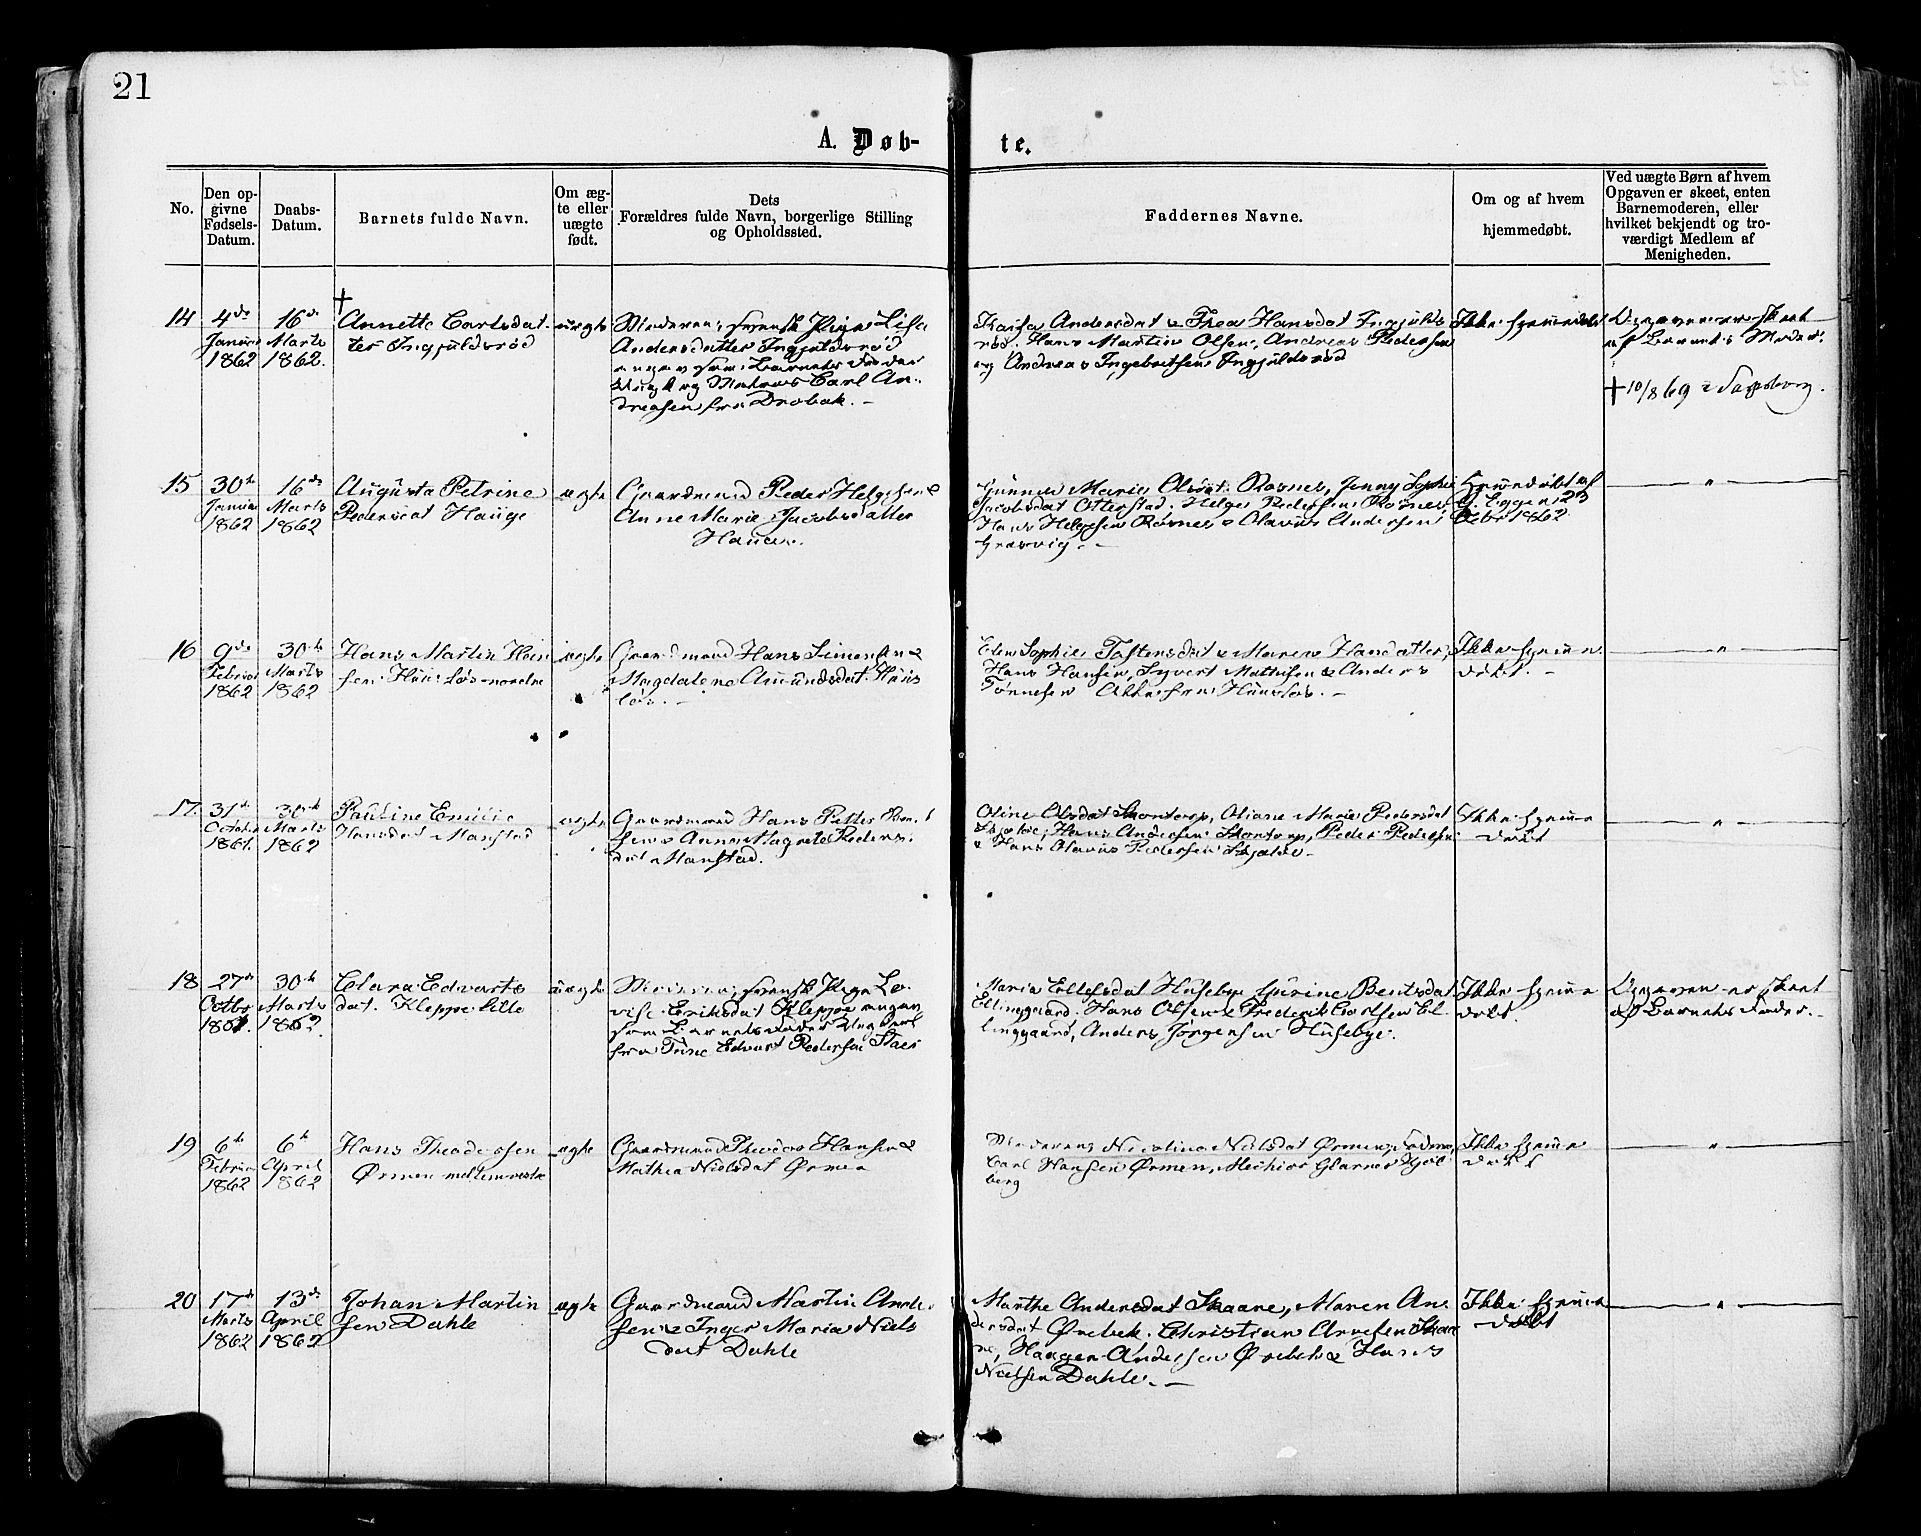 21
A. Døb-
te.
No.
Den op-
givne
Fødsels-
Datum.
Daabs-
Datum.
Barnets fulde Navn.
Om æg-
te eller
uægte
født.
Dets
Forældres fulde Navn, borgerlige Stilling
og Opholdssted.
Faddernes Navne.
Om og af hvem
hjemmedøbt.
Ved uægte Børn af hvem
Opgaven er skeet, enten
Barnemoderen, eller
hvilket bekjendt og tro-
værdigt Medlem af
Menigheden.
14
4de
Januar
1862
16de
Marts
1862.
†
Annette Carlsdat-
ter Ingjuldsrød
uægte
Moderen: svensk Pige Lisa
Andersdatter Ingjuldsrød
angav som Barnets Fader
Ungk. og Matros Carl An-
dreasen fra Drøbak. -
Kaisa Andersdat & Thea Hansdat Ingjulds
rød. Hans Martin Olsen, Andreas Pedersen
og Andreas Ingebretsen Ingjuldsrød
Ikke hjemmedøbt
Opgaven er skeet
af Barnets Moder.
† 10/8 69 i Sarpsborg.
15
30te
Januar
1862
16de
Marts
1862
Augusta Petrine
Pedersdat Hauge
ægte
Gaardmand Peder Helgesen &
Anne Marie Jacobsdatter
Hauge.
Gunnild Marie Olsdat. Rosnes, Jenny Sophie
Jacobsdat Otterstad. Helge Pedersen Rosnes,
Hans Helgesen Rosnes & Olavus Andersen
Græsvig. -
Hjemmedøbt af
Eggen 23
Febr 1862
"
16
9de
Februar
1862
30te
Marts
1862
Hans Martin Han
sen Huusløs nordre
ægte
Gaardmand Hans Simensen &
Magdalene Amundsdat. Huus
løs. -
Elen Sophie Tostensdat & Maren Hansdatter,
Hans Hansen, Syvert Mathisen & Anders
Tønnesen Alle fra Huusløs. -
Ikke hjemme
døbt. -
"
17
31te
October
1861.
30te
Marts
1862
Pauline Emilie
Hansdat Manstad
ægte
Gaardmand Hans Petter Han
sen & Anne Magrete Peders.
dat Manstad.
Oline Olsdat Skontorp, Oliane Marie Pedersdat
Skjelve, Hans Andersen Skontorp, Peder Pedersen
& Hans Olavus Pedersen Skjelve -
Ikke hjemme
døbt
"
18
27de
Octbr
1861.
30te
Marts
1862
Clara Edvarts
dat. Kleppe lille
uægte
Moderen: svensk Pige Lo
vise Eriksdat Kleppe angav
som Barnets Fader Ungkarl
fra Tune Edvart Pedersen
Maria Ellefsdat Huseby, Bentsdat
Elinggaard. Hans Olsen & Frederik Carlsen El
linggaard, Anders Jørgensen Husebye.
Ikke hjemme
døbt.
Opgaven er skeet
af Barnets Fader. -
19
6te
Februar
1862
6te
April
1862
Hans Theodorsen
Ørmen mellem vestre
ægte
Gaardmand Theodor Hansen &
Mathea Nielsdat Ørmen
Moderen, Nicoline Nielsdat Ørmen, Faderen,
Carl Hansen Ørmen, Mechior Glarner Kjøl
berg
Ikke hjemme
døbt
"
20
17de
Marts
1862
13de
April
1862
Johan Martin
sen Dahle
ægte
Gaardmand Martin Ander
sen & Inger Maria Niels
dat Dahle
Marthe Andersdat Skaare, Maren An
dersdat Ørebek. Christian Arnesen Skaa
re, Haagen Andersen Ørebek & Hans
Nielsen Dahle. -
Ikke hjemme
døbt
"